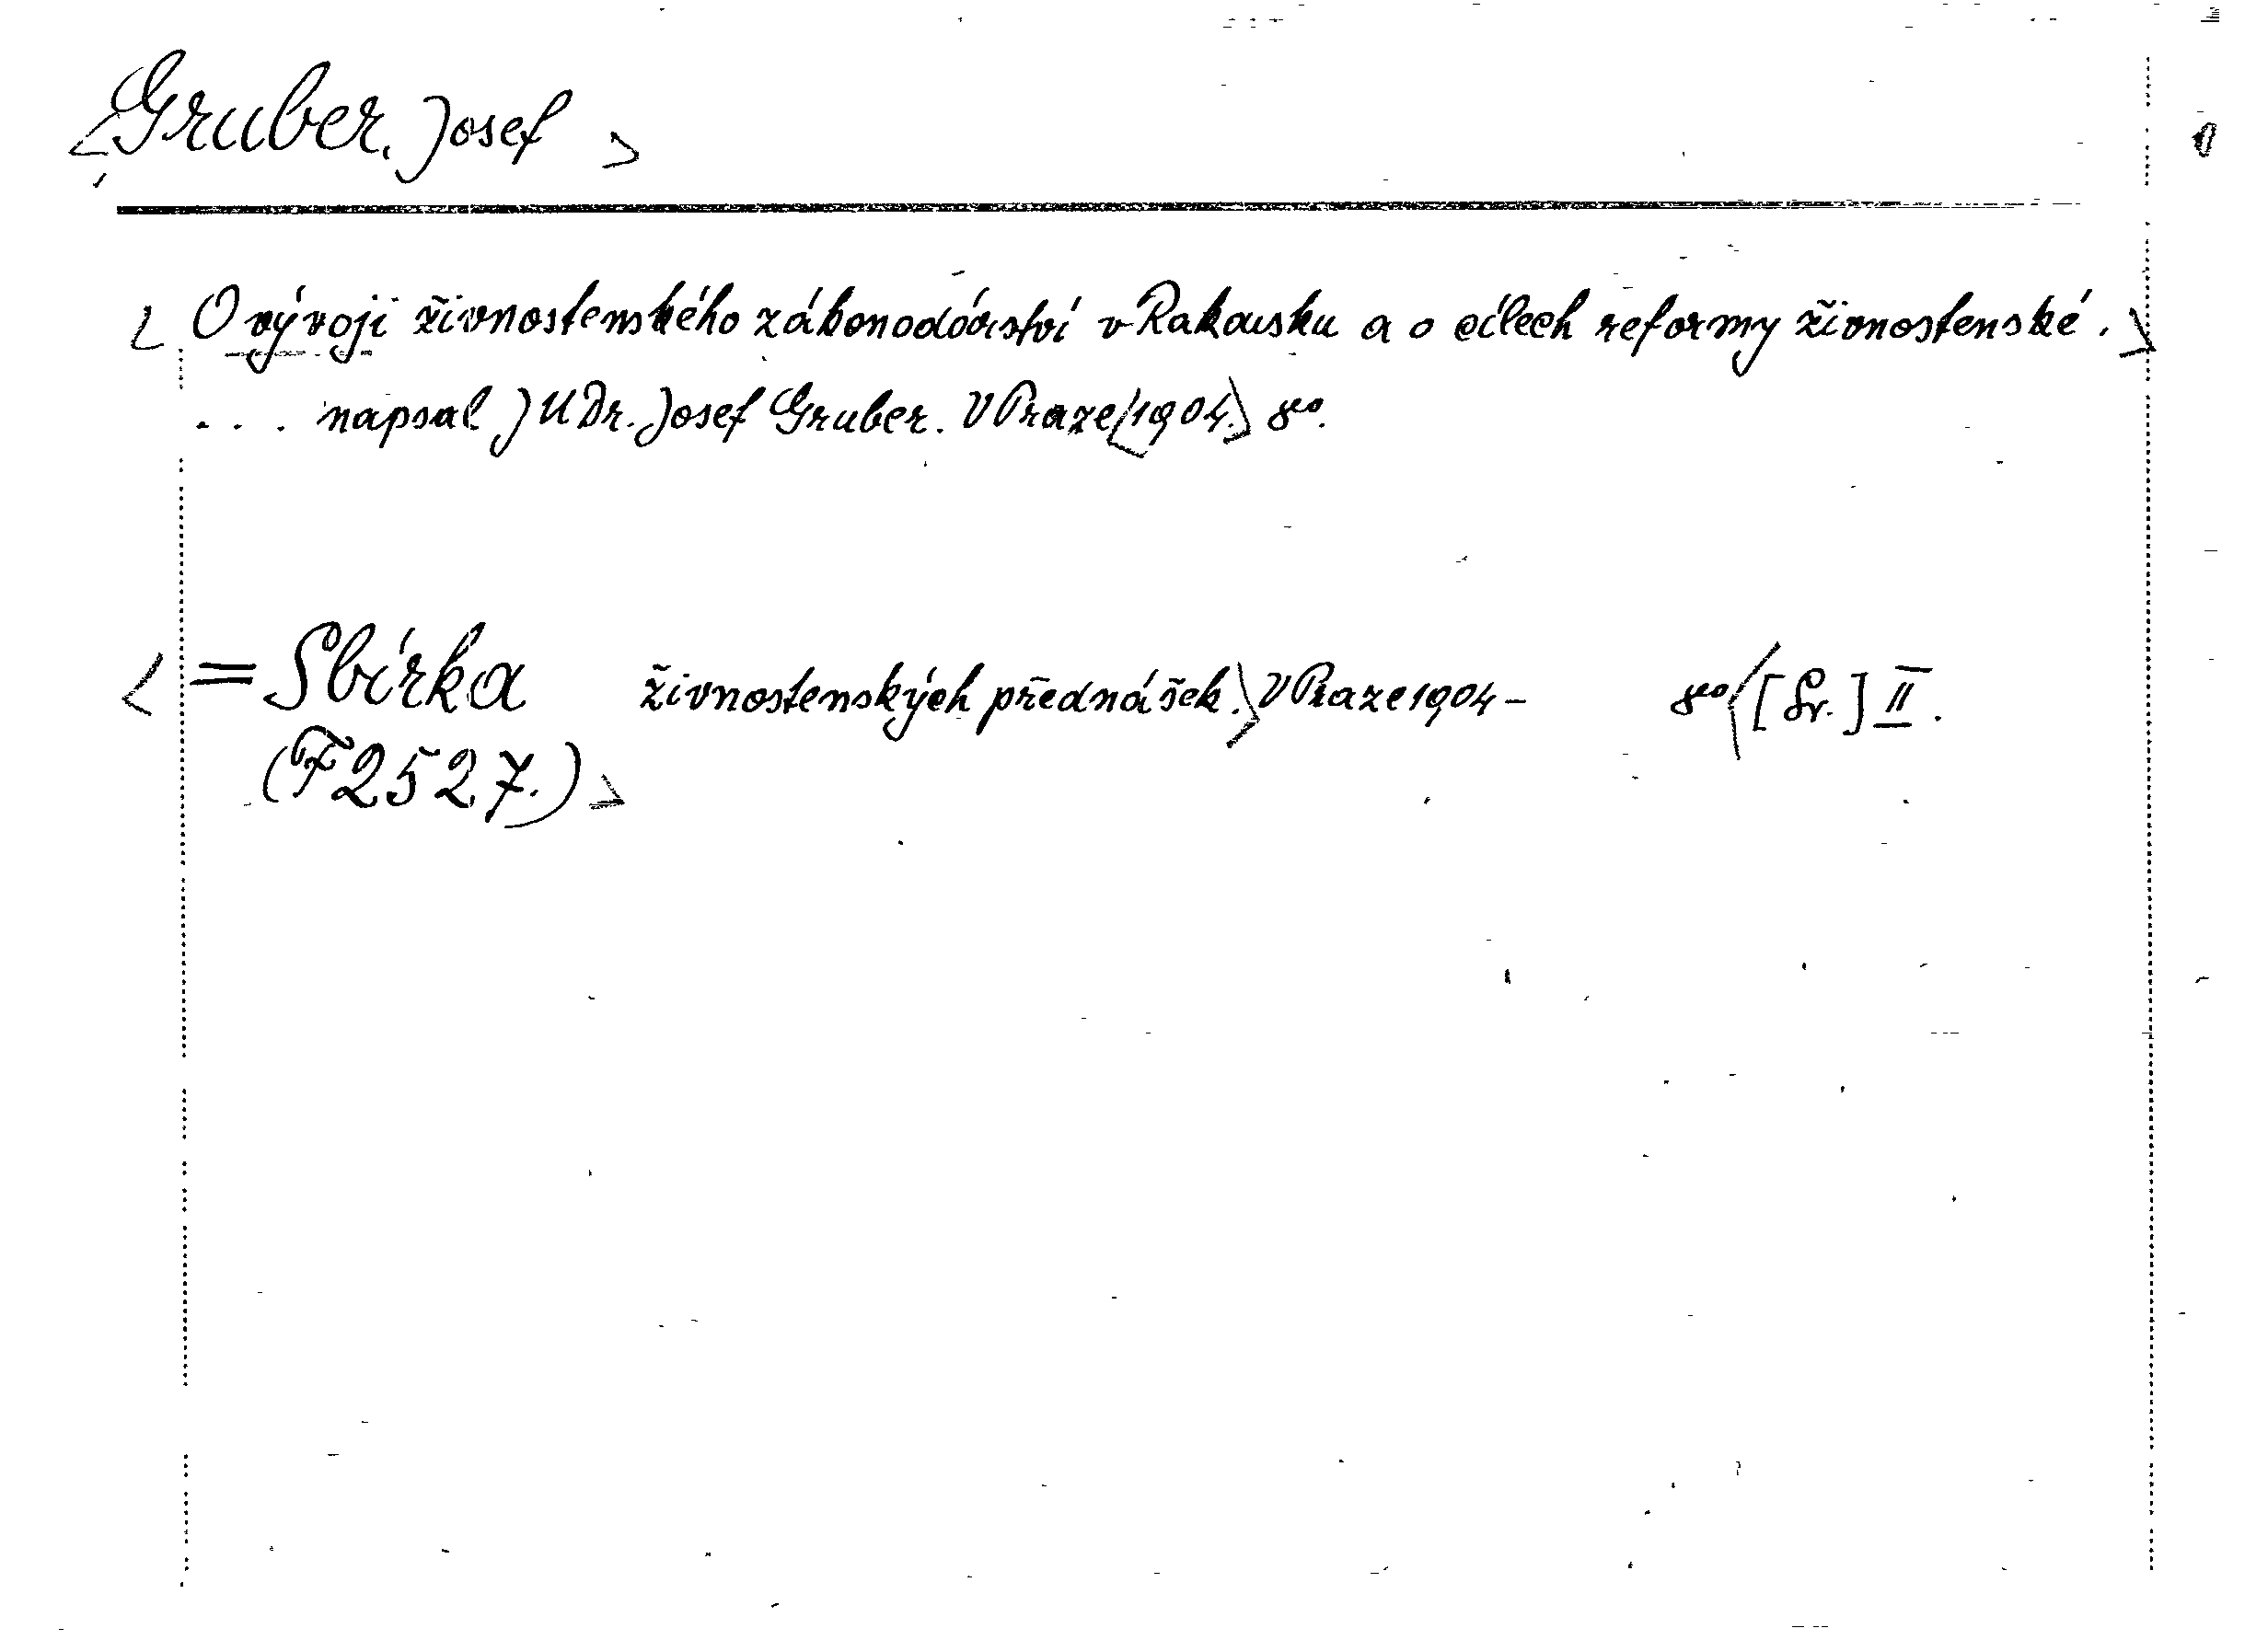 <Gruber, Josef >
< O vývoji živnostenského zákonodárství v Rakousku a o cílech reformy živnostenské. >
... napsal JUDr. Josef Gruber. V Praze <1904.> 8vo.
< = Sbírka živnostenských přednášek. > V Praze 1904 - 8vo < [Sv.] II.
(F 2527.) >